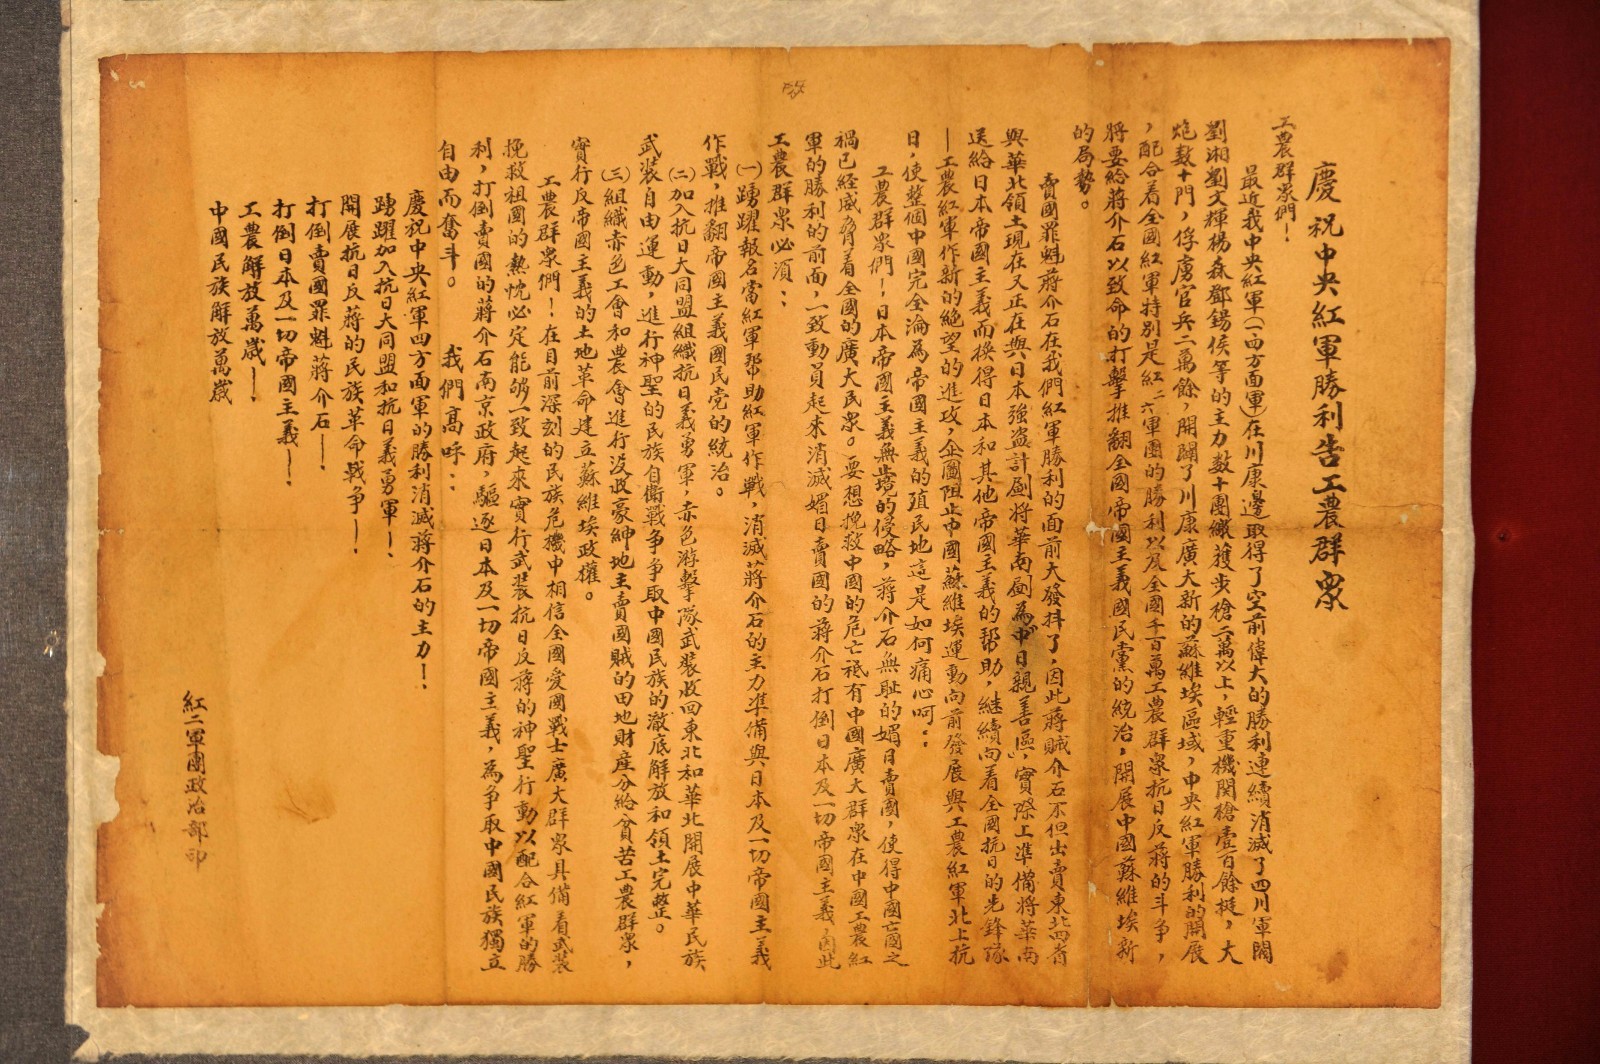 慶祝中央紅軍勝利告工農群眾
工農群眾們！
最近我中央紅軍（一四方面軍）在川康邊取得了空前偉大的勝利連續消滅了四川軍閥
劉湘劉文輝楊森鄧錫侯等的主力数十團繳獲步槍二萬以上，輕重機関槍壹百餘挺，大
炮数十門，俘虜官兵二萬餘，開闢了川康廣大新的蘇維埃區域，中央紅軍勝利的開展
，配合着全國紅軍特別是紅二六軍團的勝利以及全國千百萬工農群眾抗日反蔣的斗爭，
將要給蔣介石以致命的打擊推翻全國帝國主義國民黨的統治，開展中國蘇維埃新
的局勢。
賣國罪魁蔣介石在我們紅軍勝利的面前大發抖了，因此蔣賊介石不但出賣東北四省
與華北領土現在又正在與日本強盜計劃將華南劃為“中日親善區”，實際上準備將華南
送給日本帝國主義而換得日本和其他帝國主義的帮助，継續向着全國抗日的先鋒隊
—工農紅軍作新的絶望的進攻，企圖阻止中國蘇維埃運動向前發展與工農紅軍北上抗
日，使整個中國完全淪為帝國主義的殖民地這是如何痛心呵：
工農群眾們！日本帝國主義無境的侵略，蔣介石無耻的媚日賣國，使得中國亡國之
禍已経威脅着全國的廣大民眾。要想挽救中國的危亡祇有中國廣大群眾在中國工農紅
軍的勝利的前面，一致動員起來消滅媚日賣國的蔣介石打倒日本及一切帝國主義，因此
工農群眾必須：
（一）踴躍報名當紅軍帮助紅軍作戰，消滅蔣介石的主力準備與日本及一切帝國主義
作戰，推翻帝國主義國民党的統治。
（二）加入抗日大同盟組織抗日義勇軍，赤色游擊隊武裝收回東北和華北開展中華民族
武裝自由運動，進行神聖的民族自衛戰争争取中國民族的澈底解放和領土完整。
（三）組織赤色工會和農會進行没收豪紳地主賣國賊的田地財産分給貧苦工農群眾，
實行反帝國主義的土地革命建立蘇維埃政權。
工農群眾們！在目前深刻的民族危機中相信全國愛國戰士廣大群眾具備着武裝
挽救祖國的熱忱必定能够一致起來實行武裝抗日反蔣的神聖行動以配合紅軍的勝
利，打倒賣國的蔣介石南京政府，驅逐日本及一切帝國主義，為争取中國民族獨立
自由而奮斗。　我們高呼：
慶祝中央紅軍四方面軍的勝利消滅蔣介石的主力！
踴躍加入抗日大同盟和抗日義勇軍！
開展抗日反蔣的民族革命戰争！
打倒賣國罪魁蔣介石！
打倒日本及一切帝國主義！
工農解放萬歲！
中國民族解放萬歲
紅二軍團政治部印